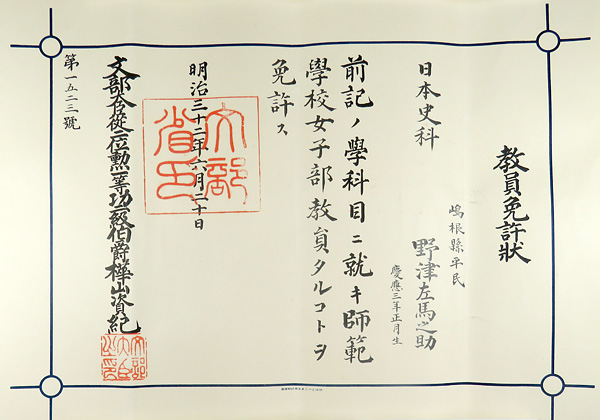 教員免許狀
嶋根縣平民
野津左馬之助
慶應三年正月生
日本史科
前記ノ學科目ニ就キ師範
學校女子部教員タルコトヲ
免許ス
明治三十二年六月二十日
文部省印
文部大臣從二位勲一等功二級伯爵樺山資紀
文部大臣之印
第一五二三號